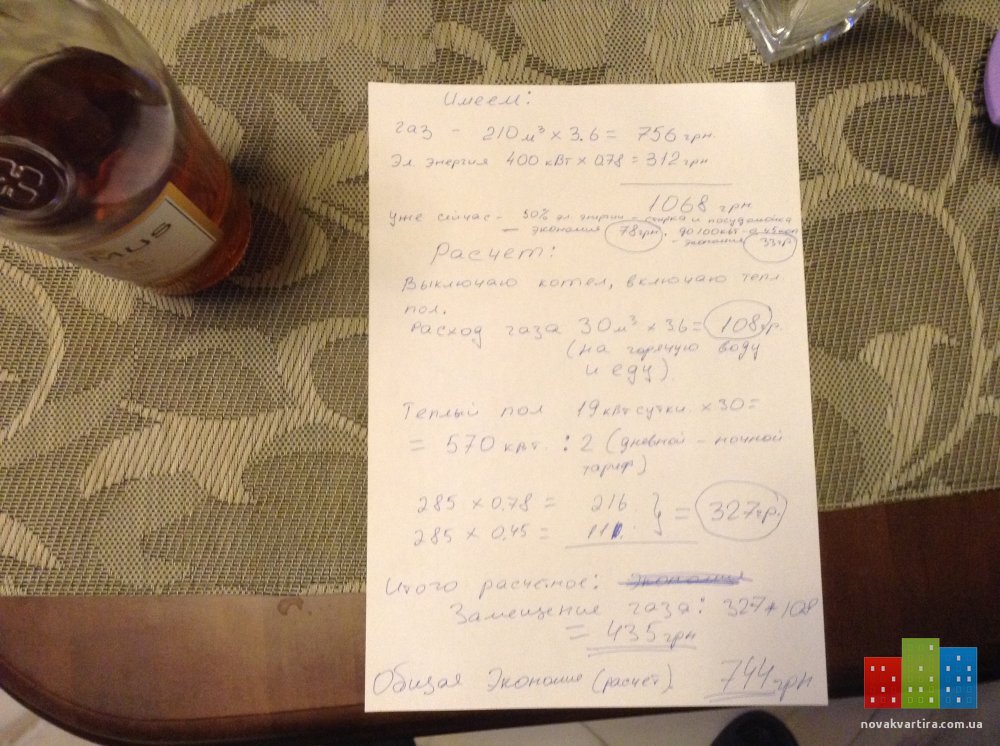 Имеем:
газ - 210 м³ × 3.6 = 756 грн.
Эл. энергия 400 кВт × 0.78 = 312 грн
1068 грн
Уже сейчас - 50% эл. энергии - стирка и посудомойка
- экономия 78 грн, до 100 кВт - 0,45 коп
- экономия 33 гр.
Расчет:
Выключаю котел, включаю тепл
пол.
Расход газа 30 м³ × 3.6 = 108 гр.
(на горячую воду
и еду).
Теплый пол 19 кВт сутки. × 30 =
= 570 кВт. : 2 (дневной - ночной
тариф)
285 × 0,78 = 216
285 × 0,45 = 111. } = 327 гр.
Итого расчетное:
Замещение газа: 327 + 108
= 435 грн
Общая Экономия (расчет) 744 грн
MUS
novakvartira.com.ua